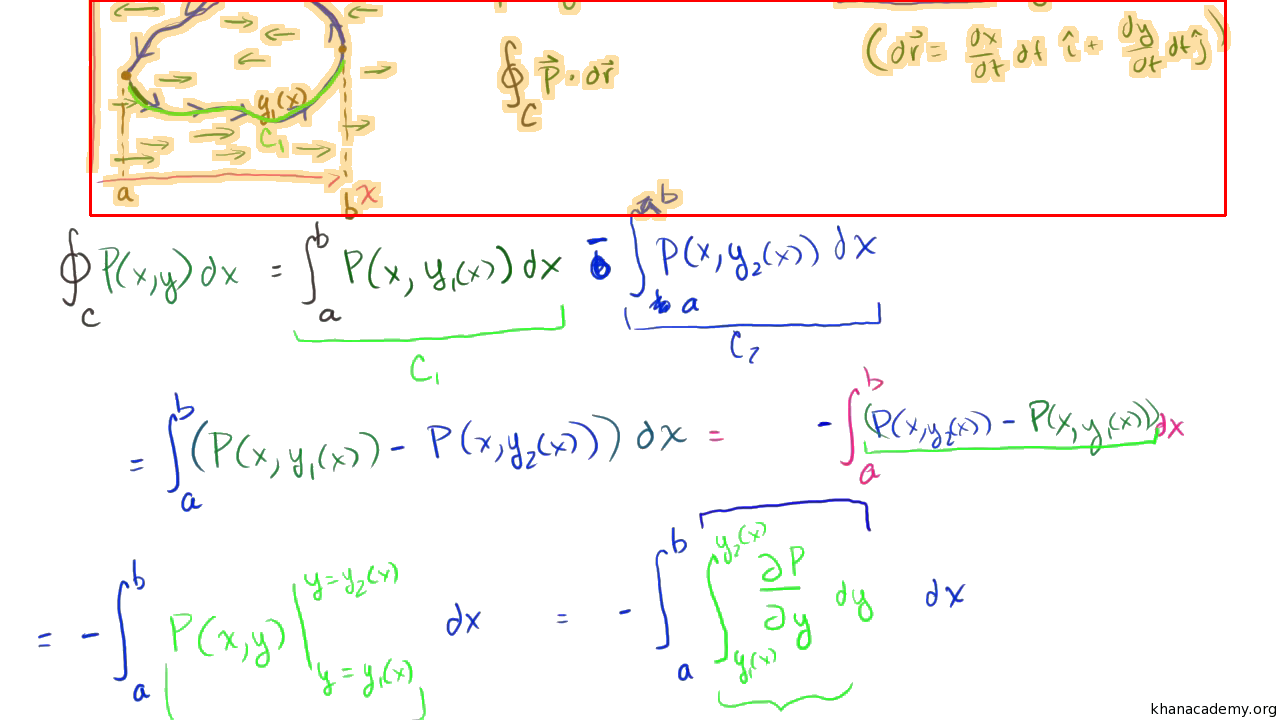 y₁(x)
C₁
a
b
x
∮_C P⃗ · dr⃗
(dr⃗ = dx/dt dt î + dy/dt dt ĵ)
∮_C P(x,y) dx = ∫_a^b P(x, y₁(x)) dx - ∫_a^b P(x, y₂(x)) dx
C₁ C₂
= ∫_a^b (P(x, y₁(x)) - P(x, y₂(x))) dx = - ∫_a^b (P(x, y₂(x)) - P(x, y₁(x))) dx
= - ∫_a^b P(x,y) |_{y = y₁(x)}^{y = y₂(x)} dx = - ∫_a^b ∫_{y₁(x)}^{y₂(x)} ∂P/∂y dy dx
khanacademy.org